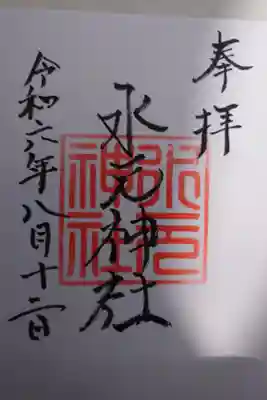 奉拝
水元神社
令和六年八月十二日
水元
神社